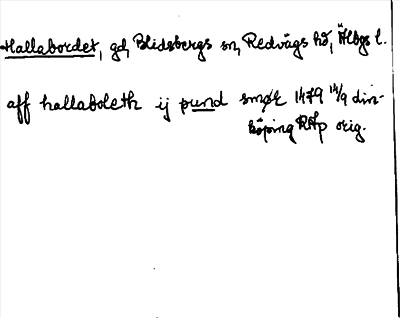 Hallabordet, gd, Blidsbergs sn, Redvägs hd, Älvsbgs l.
aff hallaboleth ij pund smør 1479 14/9 Lin-
köping RAp orig.